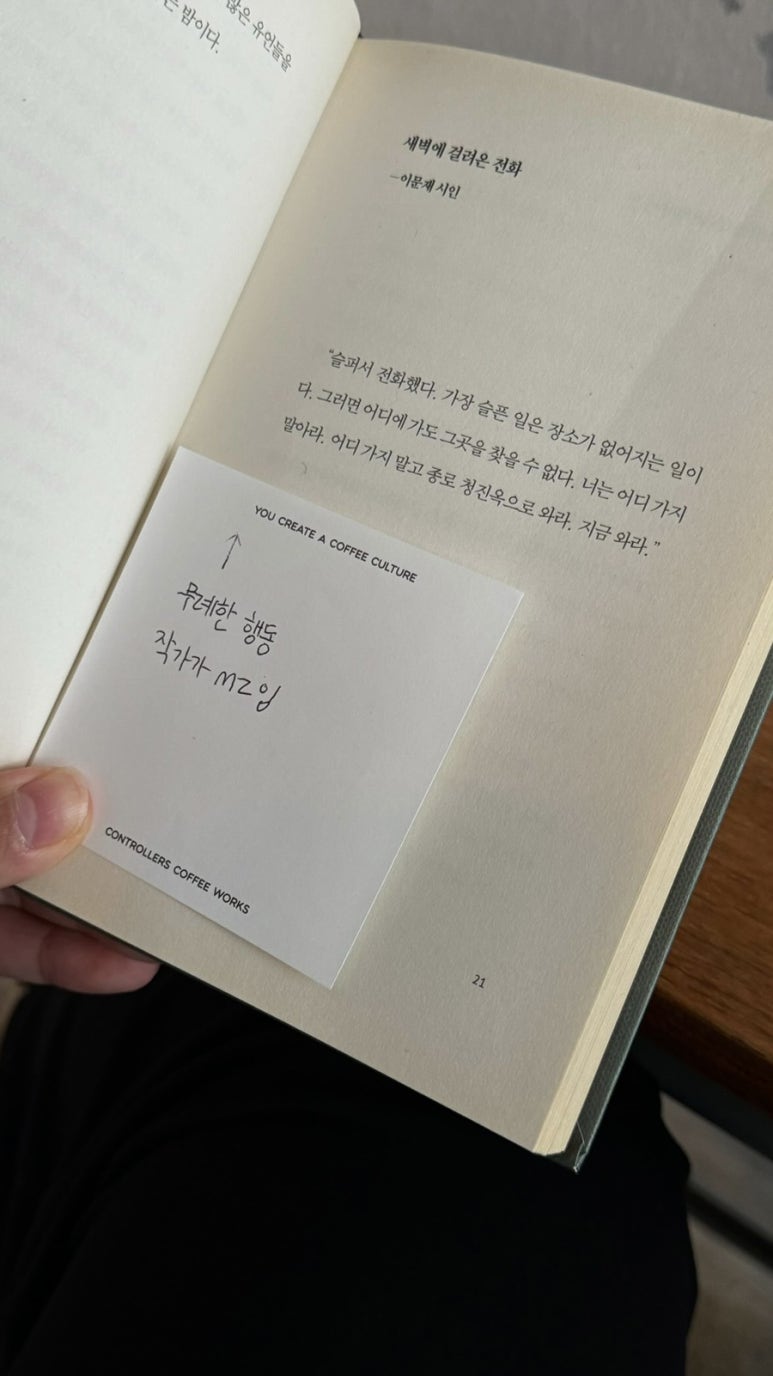 많은 유언들을
는 밤이다.
새벽에 걸려온 전화
—이문재 시인
“슬퍼서 전화했다. 가장 슬픈 일은 장소가 없어지는 일이
다. 그러면 어디에 가도 그곳을 찾을 수 없다. 너는 어디 가지
말아라. 어디 가지 말고 종로 청진옥으로 와라. 지금 와라.”
YOU CREATE A COFFEE CULTURE
↑
무례한 행동
작가가 MZ임
CONTROLLERS COFFEE WORKS
21